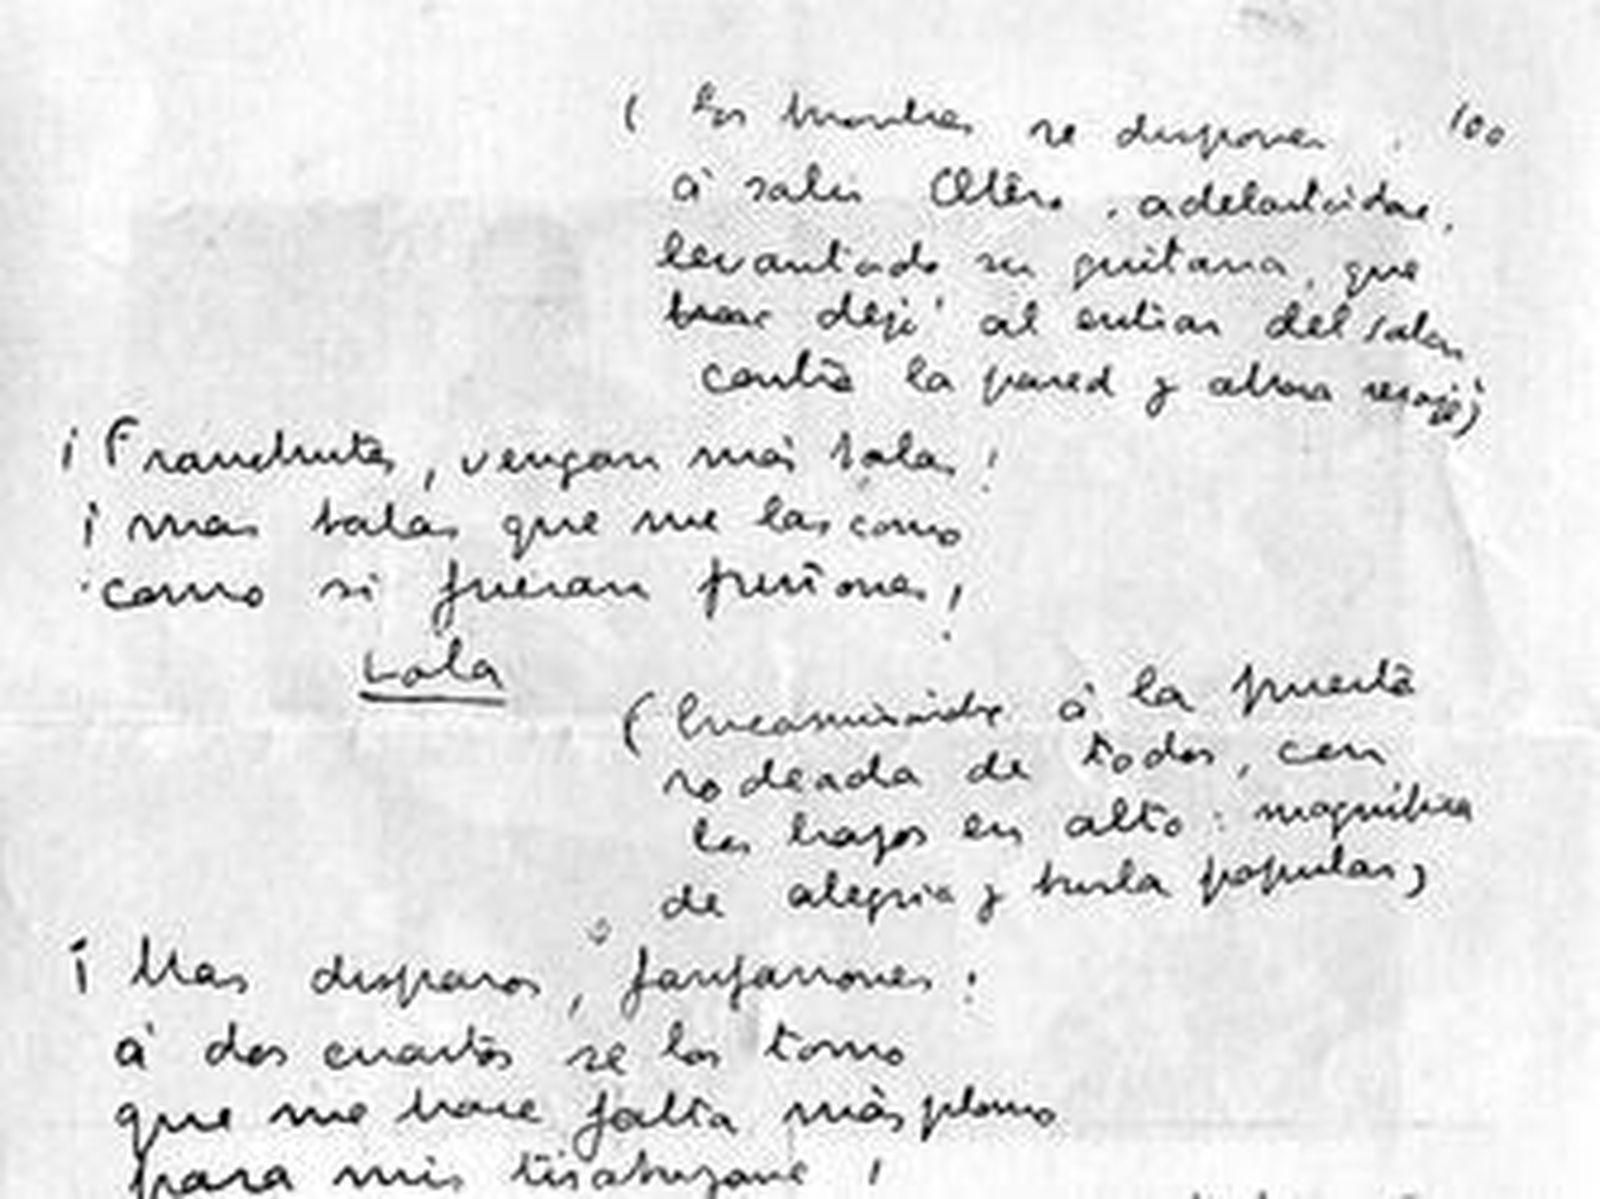 100
( Los hombres se disponen
á salir Otero, adelantándose,
levantado su guitarra, que
dejó al entrar del salon
contra la pared y ahora recoje)
¡ Franchutes, vengan más balas!
¡ mas balas que me las como
como si fueran piñones!
Lola
(Encaminándose á la puerta
rodeada de todos, con
los brazos en alto: magnífica
de alegria y burla popular)
¡ Mas disparos, fanfarrones!
á dos cuartos se los tomo
que me hace falta más plomo
para mis tirabuzones !